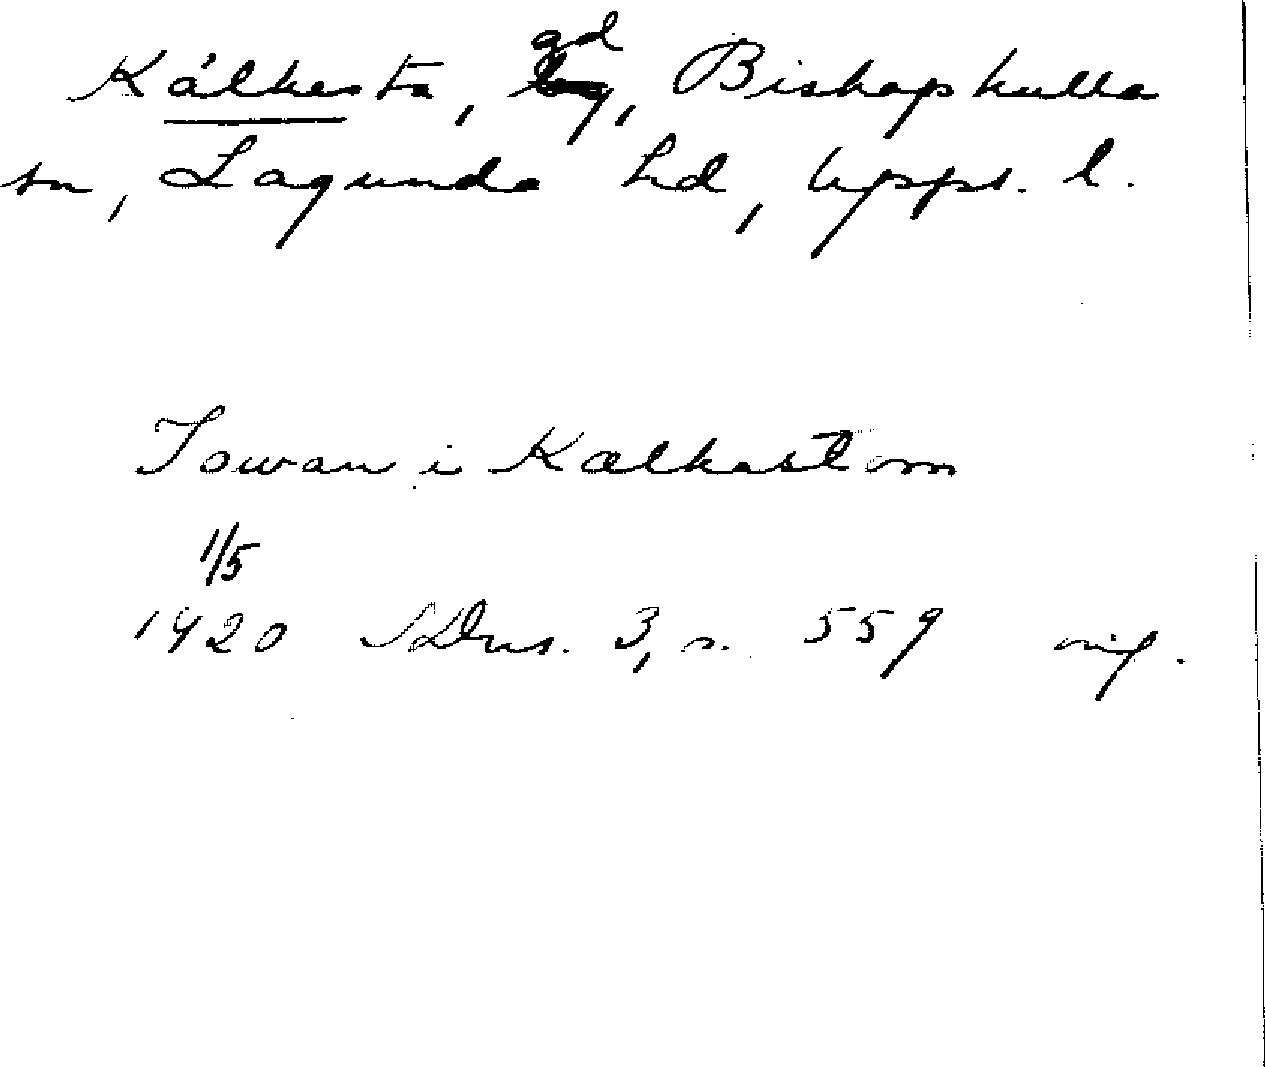 Kålkesta, gd, Biskopskulla
sn, Lagunda hd, Upps. l.
Iowan i Kalkastom
1/5
1420 SDns. 3, s. 559 orig.